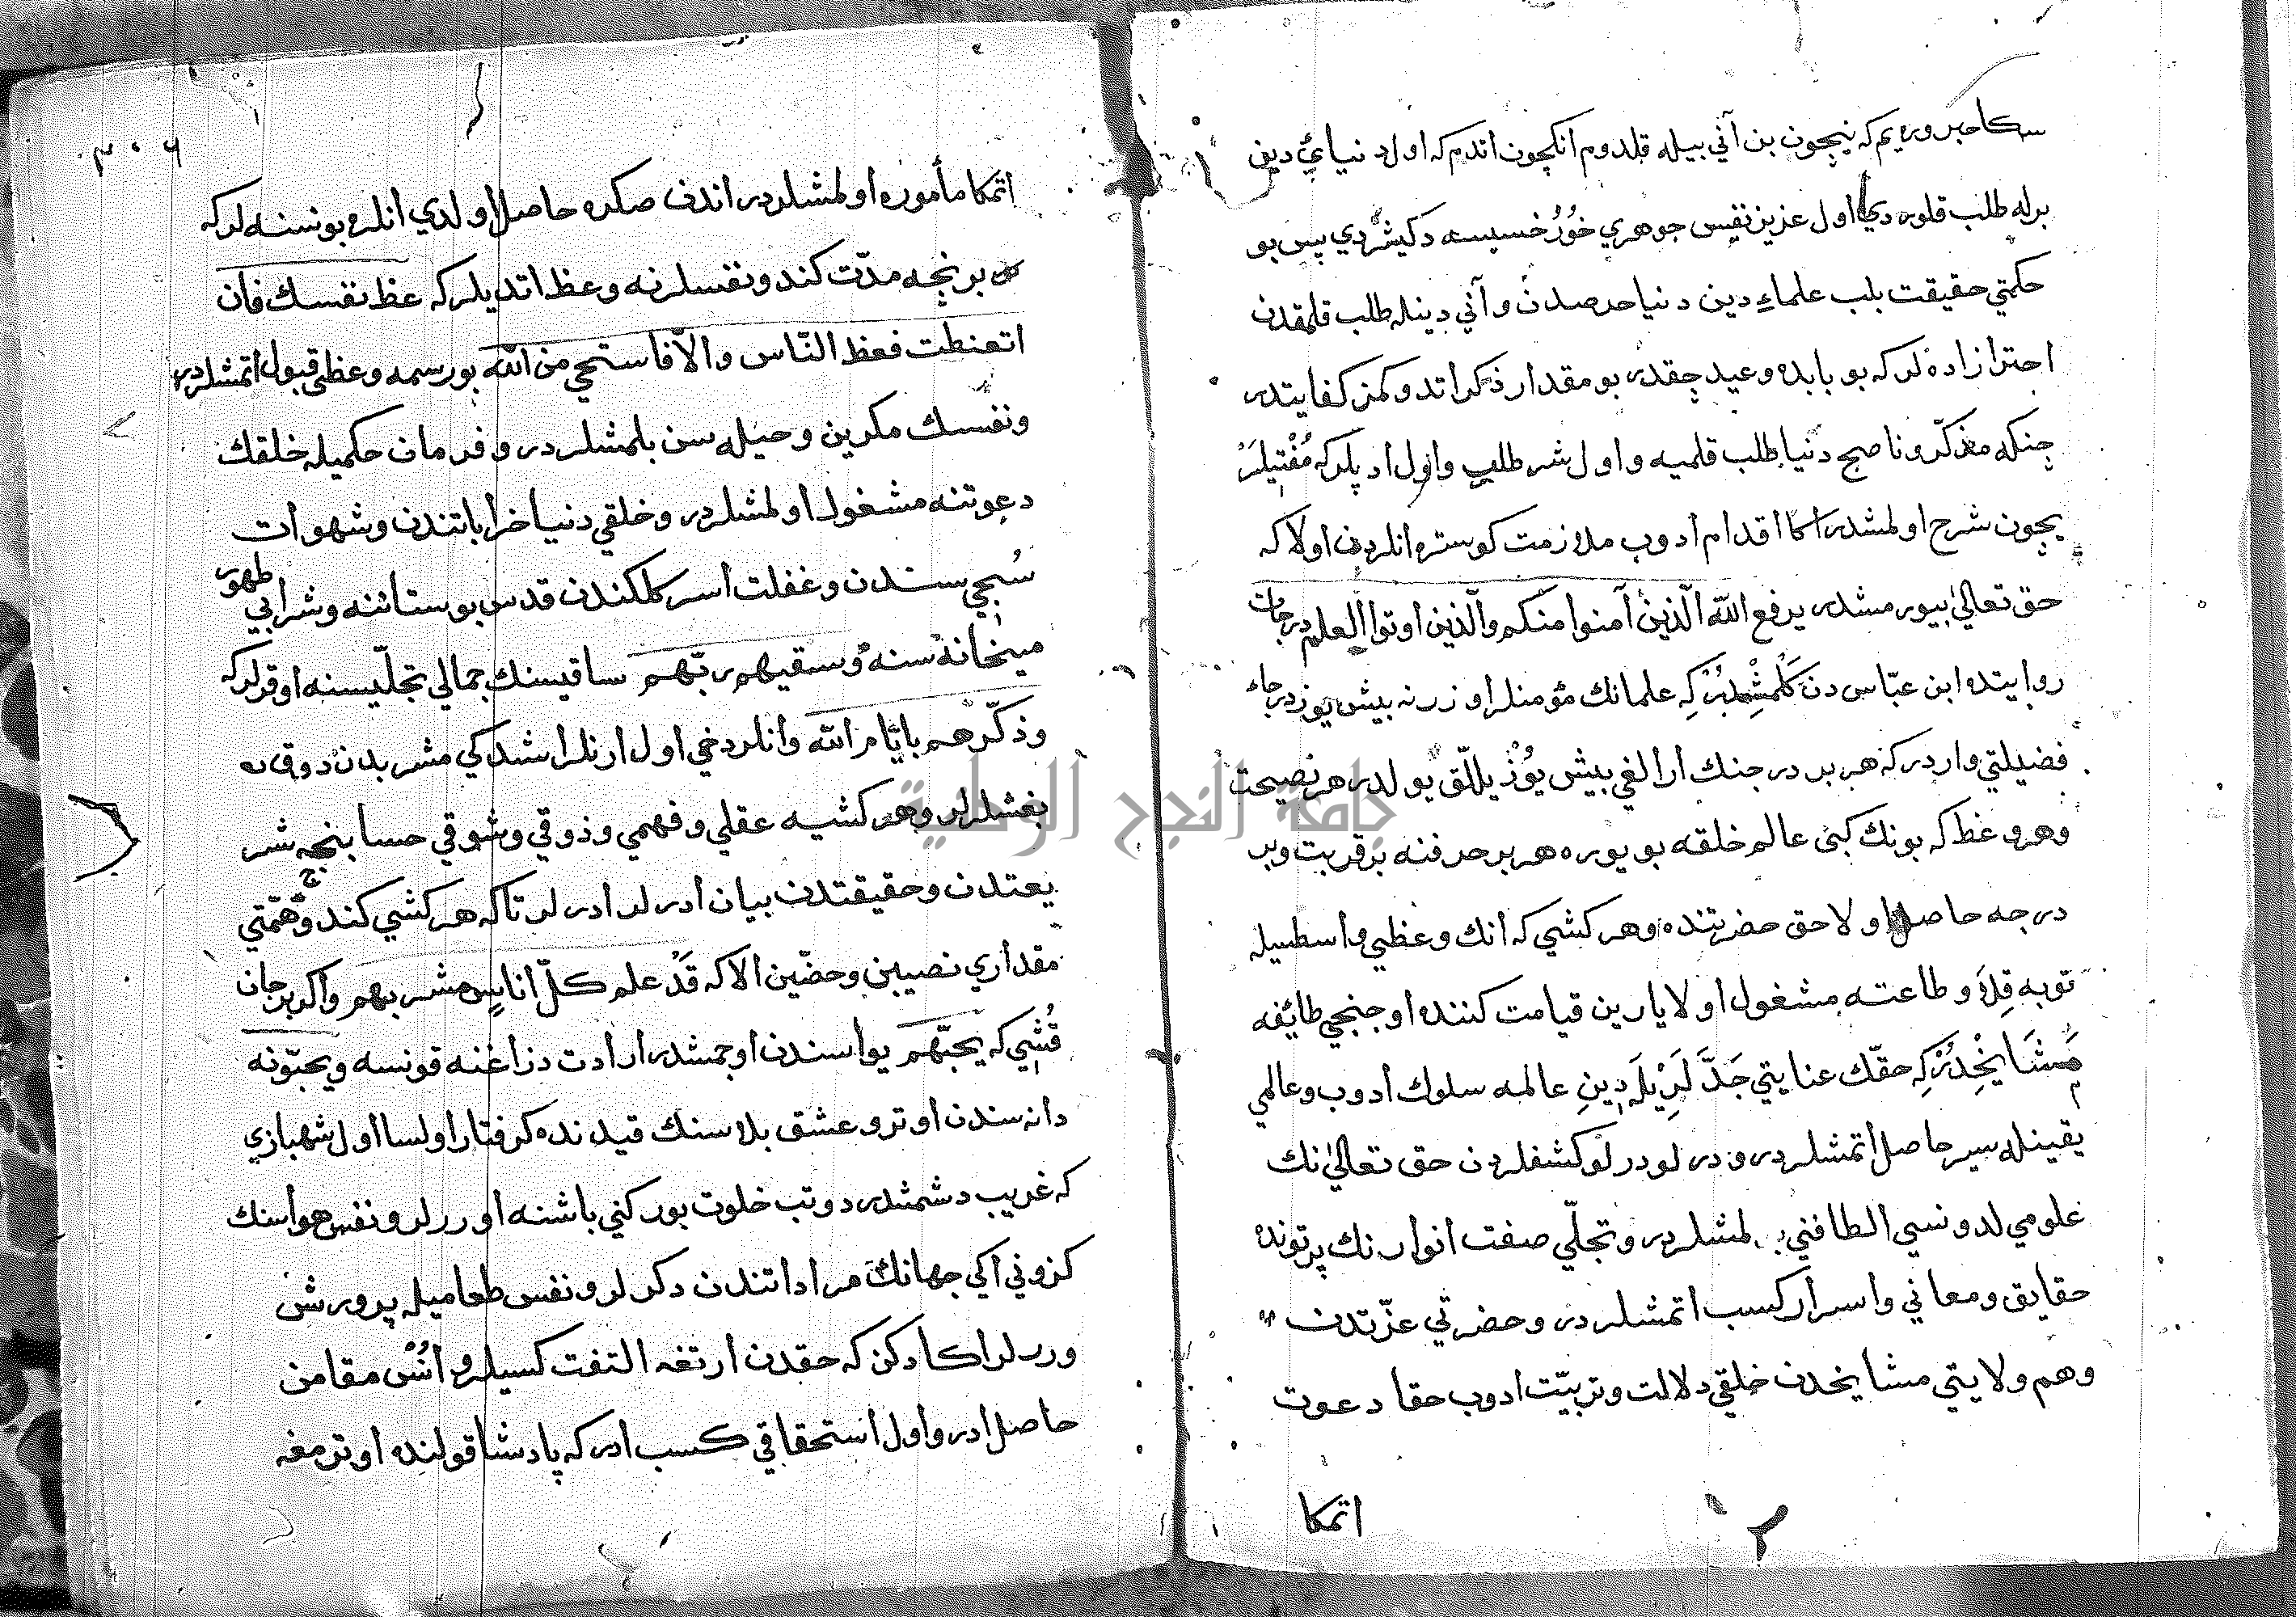 سكا خبر ويره يم كه نيچون بن آني بيله قلدوم انكچون اتدم كه اول دنيايئ دين
برله طلب قلور دي اول عزيز نفيس جوهري خُورُ خسيسه دكيشردي پس بو
حكمتي حقيقت بلب علماء دين دنيا حرصدن و آني دينله طلب قلمقدن
احتراز اده لر كه بو بابده وعيد چقدر بو مقدار ذكر اتدوكمز كفايتدر
چنكه مذكّر و ناصح دنيا طلب قلميه و اول شر طلب واول اد يلر كه مُفْتيلَرْ
يچون شرح اولمشدر اكا اقدام ادوب ملازمت كوستره انلردن اولا كه
حق تعالىٰ بيورمشدر يرفع الله الّذين آمنوا منكم والّذين اوتوا العلم درجات
روايتده ابن عبّاس دن كَلْمِشْدُرْ كِه علمانك مؤمنلر اوزرنه بيش يوز درجات
فضيلتي واردر كه هر بر درجنك ارالغي بيش يُوْز يللّق يولدر هر نصيحت
وهر وعظ كه بونك كبى عالم خلقه بويوره هر بر حرفنه بر قربت وبر
درجه حاصل اولا حق حضرتنده وهر كشي كه انك وعظي واسطسيله
توبه قِلَه و طاعته مشغول اولا يارين قيامت كننده اوچنجي طائفه
مَشَايِخْدُرْ كِه حقّك عنايتي جَدَّ لَرِيْلَه دِينِ عالمه سلوك ادوب وعالمي
يقينله سير حاصل اتمشلردر ودرلو درلو كشفلردن حق تعالىٰ نك
علومي لدونسي الطافني بلمشلردر وتجلّي صفت انوارنك پرتونده
حقايق ومعاني واسرار كسب اتمشلردر وحضرتي عزّتدن
وهم ولايتي مشايخدن خلقي دلالت وتربيّت ادوب حقا دعوت
اتمكا
٣٠٦
اتمكا مأموره اولمشلردر اندن صكره حاصل اولدي انلره بونسنه لر كه
بر نچه مدّت كندو نفسلرنه وعظ اتديلر كه عظ نفسك فان
اتعظت فعظ النّاس والّا فاستحي من الله بورسمه وعظي قبول اتمشلردر
ونفسك مكرين وحيله سن بلمشلردر وفرمان حكميله خلقك
دعوتنه مشغول اولمشلردر وخلقي دنيا خراباتندن وشهوات
سُجي سندن وغفلت اسركلكندن قدس بوستاننه وشرابي طهور
ميخانه سنه وسقيهم ربّهم ساقيسنك جمالي تجلّيسنه اوقرلر كه
وذكّرهم بايّام الله وانلر دخي اول ارنلر اشدكي مشربدن ذوق
بغشلرلر وهر كشيه عقلي وفهمي وذوقي وشوقي حسابنجه شر
يعتدن وحقيقتدن بيان ادرلر ادرلر تاكه هر كشي كندو همّتي
مقداري نصيبن وحضّين الا كه قَدْ علم كلّ اناسٍ مشربهم واكر بن جان
قُشي كه يحبّهم يواسندن اوچمشدر ارادت دزاغنه قونسه ويحبّونه
دانه سندن اوترو عشق بلاسنك قيدنده كرفتار اولسا اول شهبازي
كه غريب دشمشدر دوتب خلوت بوركني باشنه اوررلر ونفس هواسنك
كزوني اكي جهانك مراداتندن دكرلر ونفس طعاميله پرورش
وررلر اكا دكن كه حقدن ارتغه التفت كسيلر و اُنُس مقامن
حاصل ادر واول استحقاقي كسب ادر كه پادشا قولنده اوترمغه